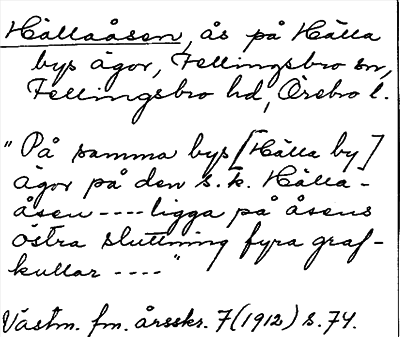 Hällaåsen, ås på Hälla
bys ägor, Fellingsbro sn,
Fellingsbro hd, Örebro l.
"På samma bys [Hälla by]
ägor på den s.k. Hälla-
åsen ---- ligga på åsens
östra sluttning fyra graf-
kullar ----"
Västm. fm. årsskr. 7 (1912) s. 74.